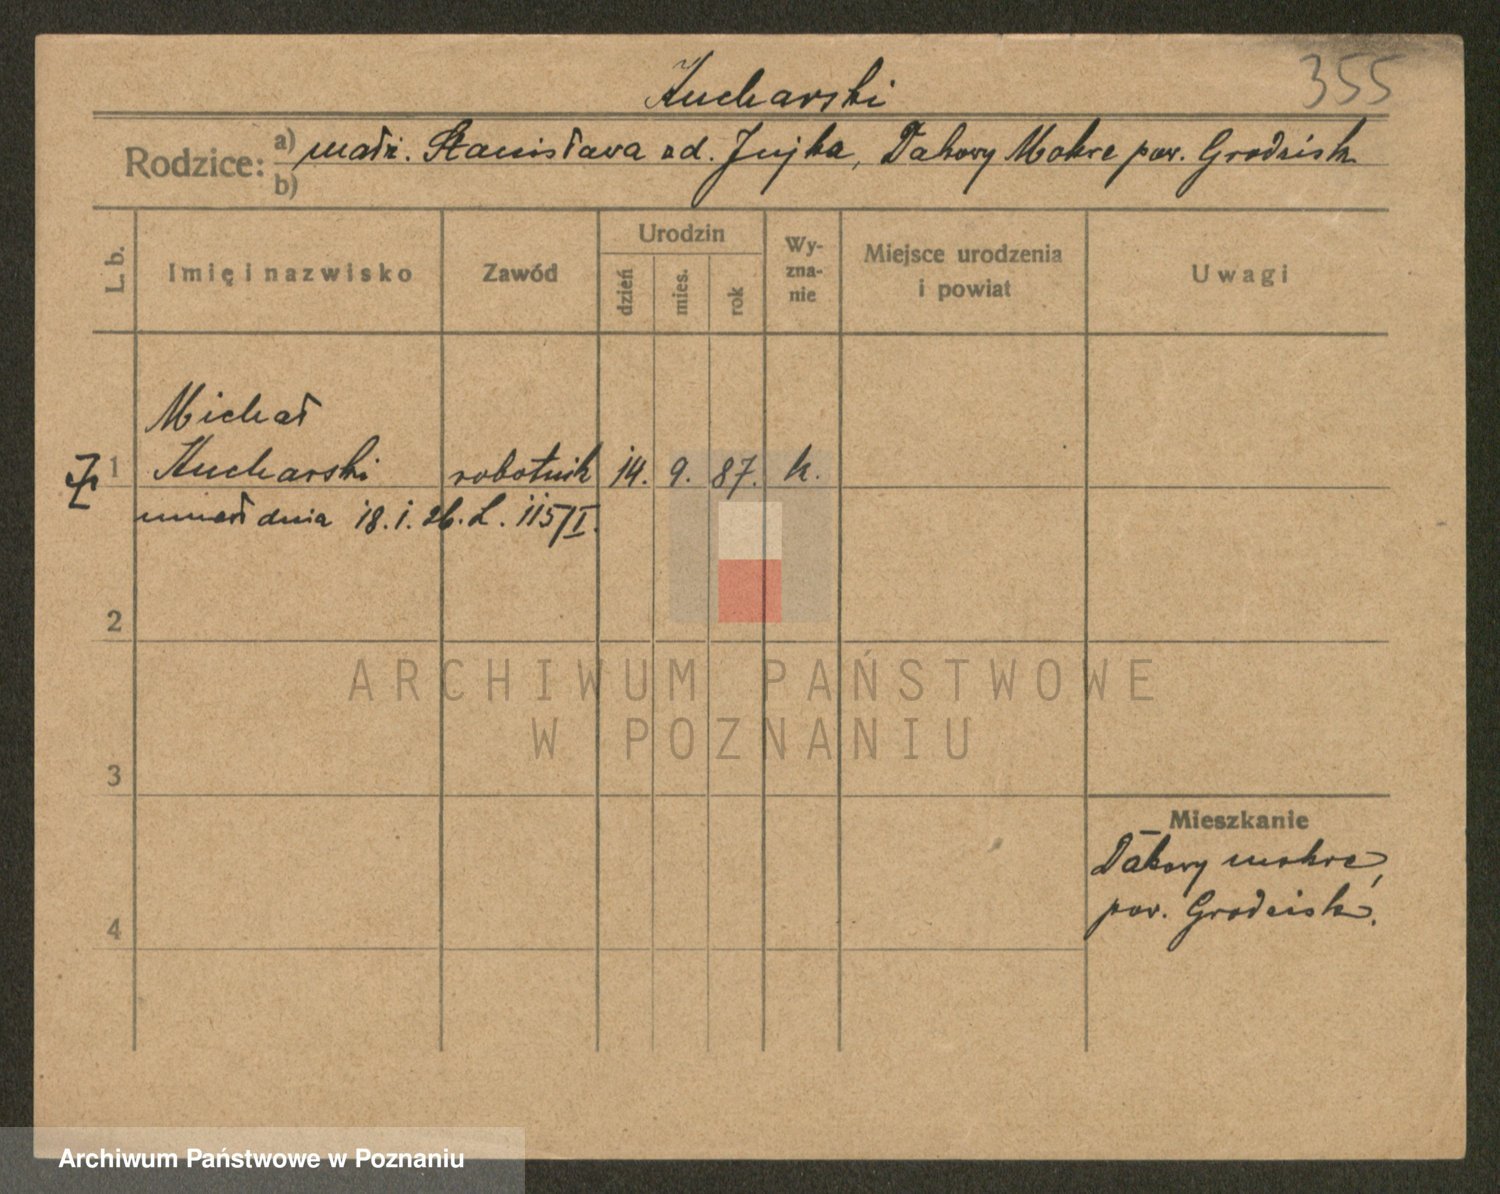 355
Kucharski
Rodzice: a) małż. Stanisława od. Jujka, Dakowy Mokre pow. Grodzisk
b)
L. b. Imię i nazwisko Zawód Urodzin dzień mies. rok Wyznanie Miejsce urodzenia i powiat Uwagi
Michał
1 Kucharski robotnik 14. 9. 87. k.
umarł dnia 18. 1. 26. L. 115/I.
2
ARCHIWUM PAŃSTWOWE
W POZNANIU
3
Mieszkanie
Dakowy mokre,
pow. Grodzisk.
4
Archiwum Państwowe w Poznaniu